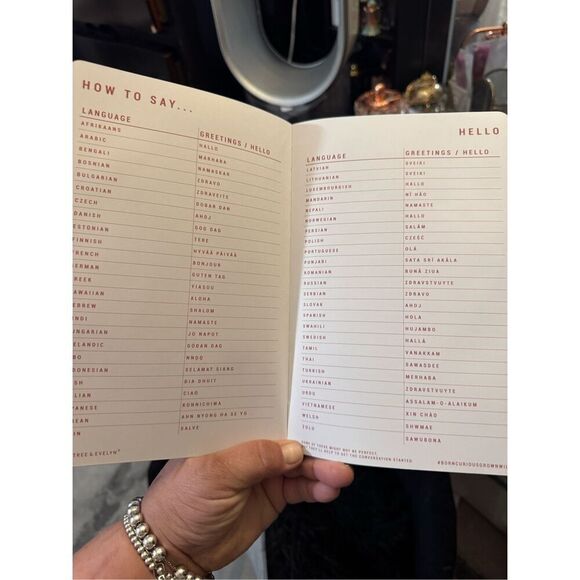 HOW TO SAY...
LANGUAGE GREETINGS / HELLO
AFRIKAANS HALLO
ARABIC MARHABA
BENGALI NAMASKAR
BOSNIAN ZDRAVO
BULGARIAN ZDRAVEITE
CROATIAN DOBAR DAN
CZECH AHOJ
DANISH GOD DAG
ESTONIAN TERE
FINNISH HYVÄÄ PÄIVÄÄ
FRENCH BONJOUR
ERMAN GUTEN TAG
REEK YIASOU
AWAIIAN ALOHA
EBREW SHALOM
NDI NAMASTE
UNGARIAN JO NAPOT
ELANDIC GÓDAN DAG
BO NNDO
DONESIAN SELAMAT SIANG
SH DIA DHUIT
LIAN CIAO
PANESE KONNICHIWA
EAN AHN NYONG HA SE YO
IN SALVE
TREE & EVELYN
HELLO
LANGUAGE GREETINGS / HELLO
LATVIAN SVEIKI
LITHUANIAN SVEIKI
LUXEMBOURGISH HALLO
MANDARIN NÍ HÁO
NEPALI NAMASTE
NORWEGIAN HALLO
PERSIAN SALÂM
POLISH CZEŚĆ
PORTUGUESE OLÁ
PUNJABI SATA SRÍ AKÁLA
ROMANIAN BUNĂ ZIUA
RUSSIAN ZDRAVSTVUYTE
SERBIAN ZDRAVO
SLOVAK AHOJ
SPANISH HOLA
SWAHILI HUJAMBO
SWEDISH HALLÅ
TAMIL VANAKKAM
THAI SAWASDEE
TURKISH MERHABA
UKRAINIAN ZDRAVSTVUYTE
URDU ASSALAM-O-ALAIKUM
VIETNAMESE XIN CHÀO
WELSH SHWMAE
ZULU SAWUBONA
SOME OF THESE MIGHT NOT BE PERFECT,
BUT THEY'LL HELP TO GET THE CONVERSATION STARTED
#BORNCURIOUSGROWNWIL